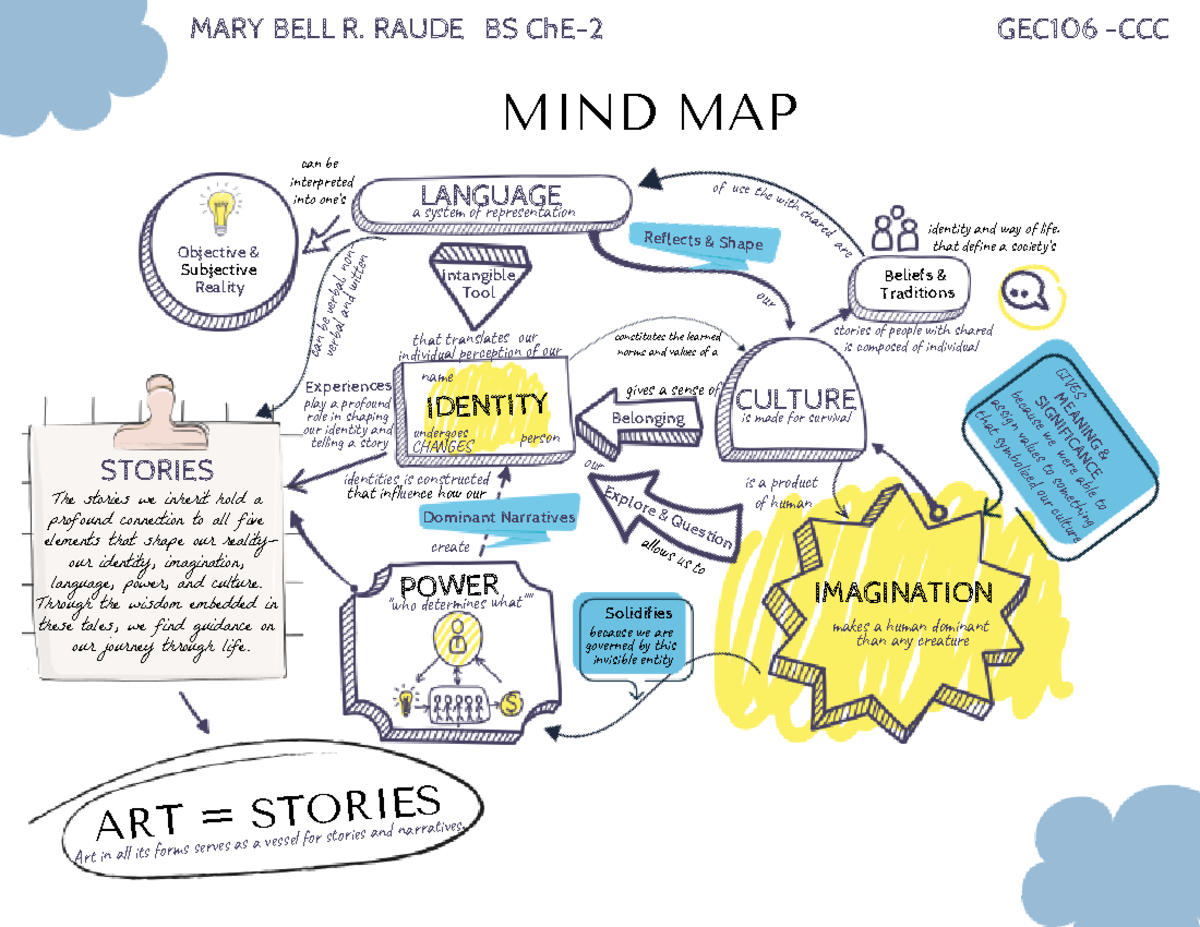 MARY BELL R. RAUDE BS ChE-2
GEC106 -CCC
MIND MAP
can be
interpreted
into one's
LANGUAGE
a system of representation
of use the with shared are
Reflects & Shape
our
identity and way of life.
that define a society's
Objective &
Subjective
Reality
can be verbal non-
verbal and written
Intangible
Tool
Beliefs &
Traditions
stories of people with shared
is composed of individual
that translates our
individual perception of our
constitutes the learned
norms and values of a
Experiences
play a profound
role in shaping
our identity and
telling a story
name
IDENTITY
undergoes
CHANGES
person
gives a sense of
Belonging
CULTURE
is made for survival
GIVES
MEANING &
SIGNIFICANCE
because we were able to
assign values to something
that symbolized our culture
STORIES
The stories we inherit hold a
profound connection to all five
elements that shape our reality–
our identity, imagination,
language, power, and culture.
Through the wisdom embedded in
these tales, we find guidance on
our journey through life.
identities is constructed
that influence how our
our
Explore & Question
allows us to
is a product
of human
Dominant Narratives
create
POWER
"who determines what""
Solidifies
because we are
governed by this
invisible entity
IMAGINATION
makes a human dominant
than any creature
$
ART = STORIES
Art in all its forms serves as a vessel for stories and narratives.